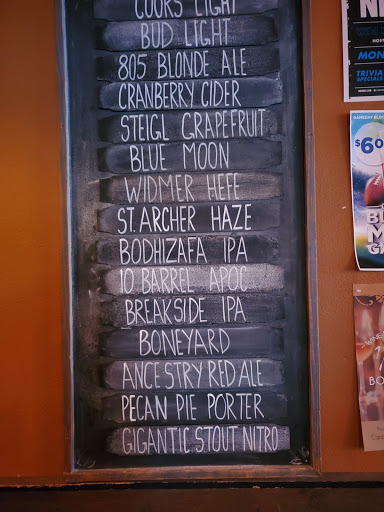 COORS LIGHT
BUD LIGHT
805 BLONDE ALE
CRANBERRY CIDER
STEIGL GRAPEFRUIT
BLUE MOON
WIDMER HEFE
ST. ARCHER HAZE
BODHIZAFA IPA
10 BARREL APOC
BREAKSIDE IPA
BONEYARD
ANCESTRY RED ALE
PECAN PIE PORTER
GIGANTIC STOUT NITRO
MON
TRIVIA
SPECIALS
$6